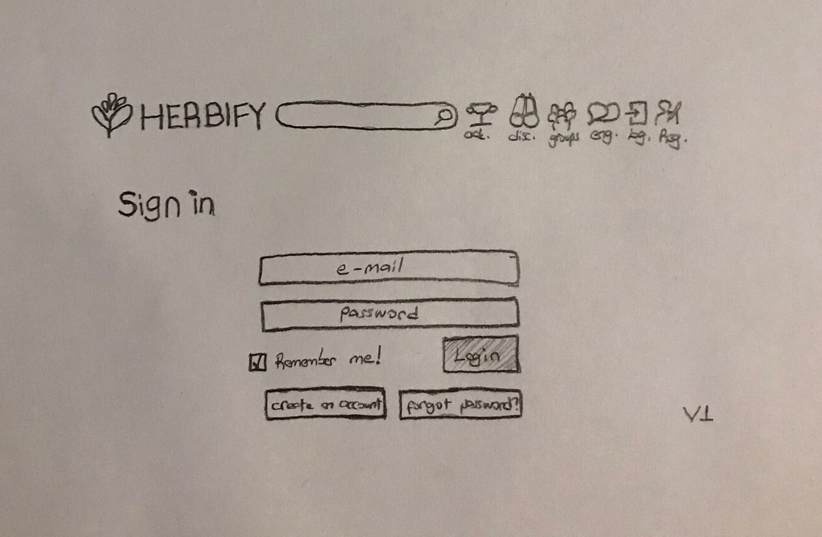 HERBIFY
act. dis. groups eng. Log. Reg.
Sign in
e-mail
password
Remember me!
Login
create an account
forgot password?
V1